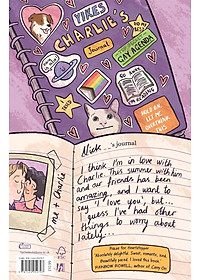 YIKES
CHARLIE'S
Journal
GAY AGENDA
HOLD ON,
LET ME
OVERTHINK
THIS
Nick ...'s journal
I think I'm in love with
Charlie. This summer with him
and our friends has been
amazing, and I want to
say 'I love you', but...
I guess I've had other
things to worry about
lately...
me + Charlie
Praise for Heartstopper
'Absolutely delightful. Sweet, romantic, and
beautifully paced. I loved this book.'
RAINBOW ROWELL, author of Carry On